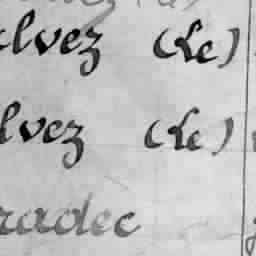 alvez (Le)
lvez (Le)
radec